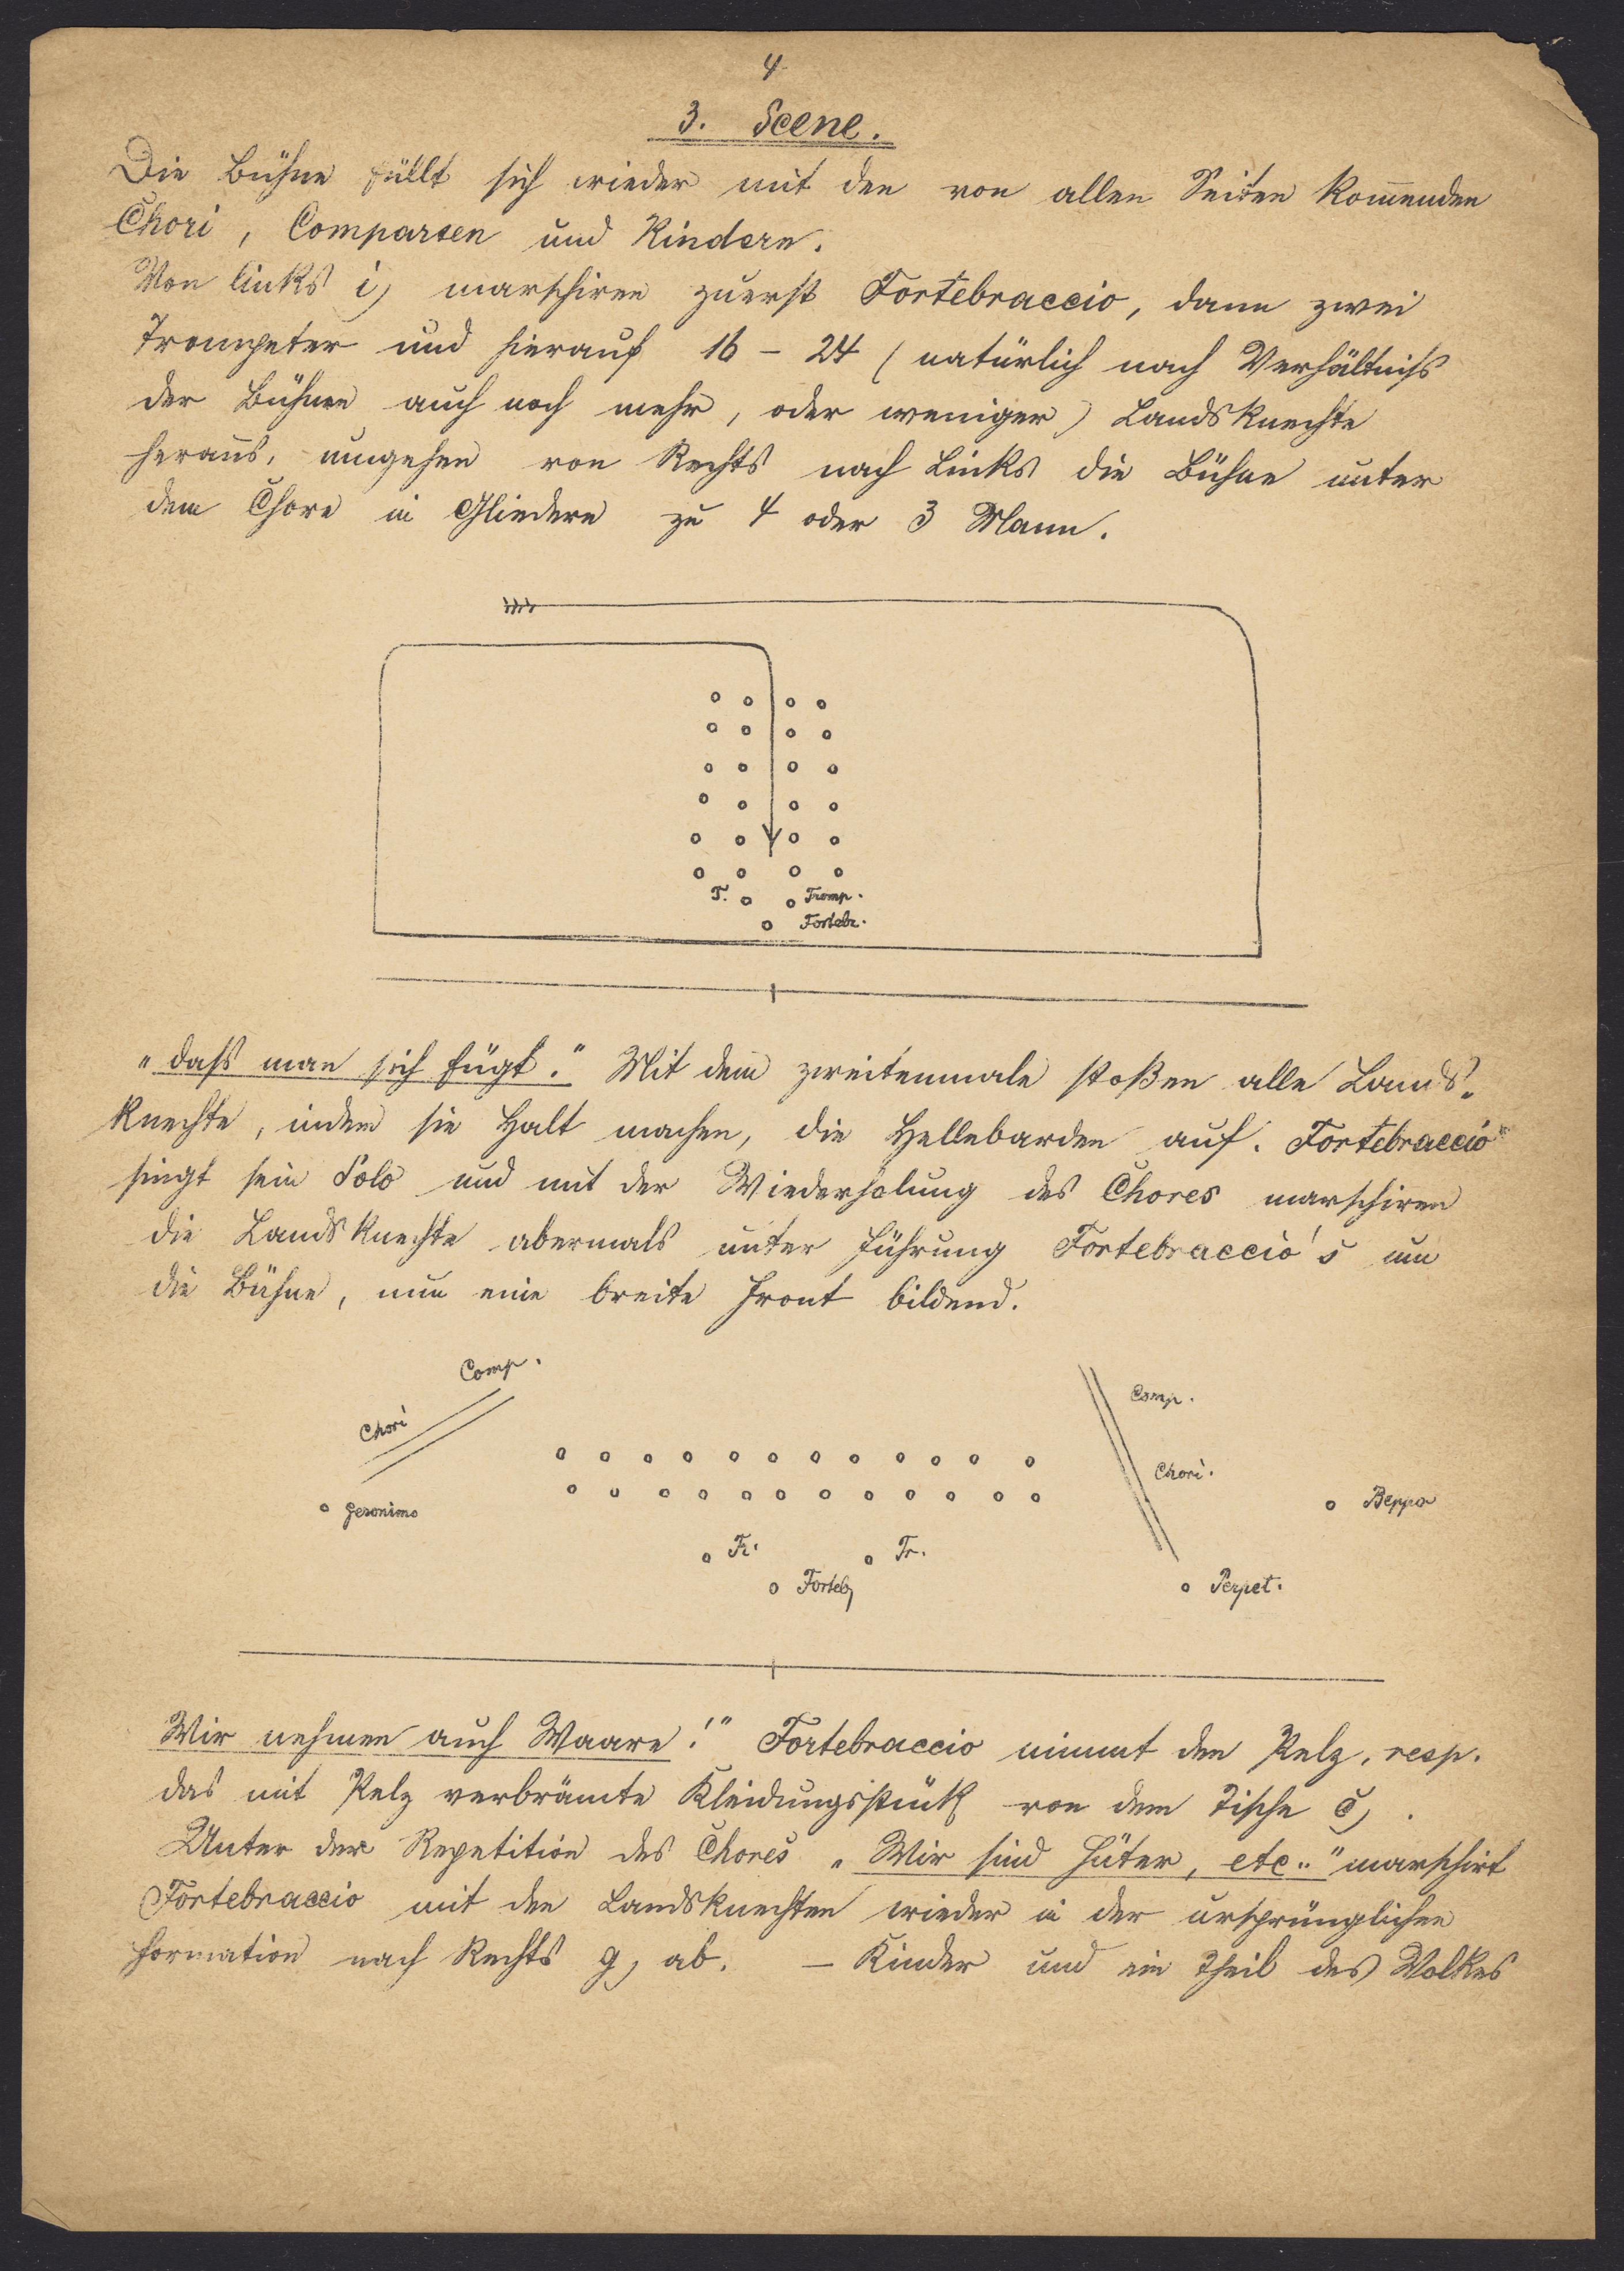 4
3. Scene.
Die Bühne füllt sich wieder mit den von allen Seiten kom̄enden
Chori, Comparsen und Kindern.
Von links i) marschiren zuerst Fortebraccio, dann zwei
Trompeter und hierauf 16 – 24 (natürlich nach Verhältniss
der Bühnen auch noch mehr, oder weniger) Landsknechte
heraus, umgehen von Rechts nach Links die Bühne unter
dem Chore in Gliedern zu 4 oder 3 Mann.
T. Tromp.
Fortebr.
„dass man sich fügt." Mit dem zweitenmale stoßen alle Lands„
knechte, indem sie Halt machen, die Hellebarden auf. Fortebraccio
singt sein Solo und mit der Wiederholung des Chores marschiren
die Landsknechte abermals unter Führung Fortebraccio's um
die Bühne, nun eine breite Front bildend.
Comp. Comp.
Chori Chori.
Geronimo Beppo
Tr. Tr.
Forteb, Perpet.
Wir nehmen auch Waare!" Fortebraccio nimmt den Pelz, resp.
das mit Pelz verbrämte Kleidungsstück von dem Tische c).
Unter der Repetition des Chores „Wir sind Hüter, etc.." marschirt
Fortebraccio mit den Landsknechten wieder in der ursprünglichen
Formation nach Rechts g) ab. – Kinder und ein Theil des Volkes